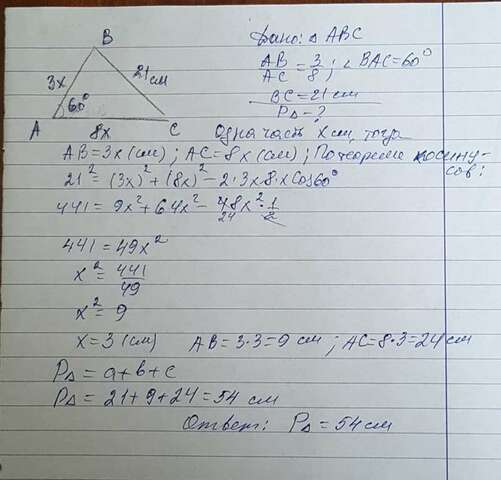 B
3x
21 см
60°
A
8x
C
Дано: △ ABC
AB/AC = 3/8 ; ∠ BAC = 60°
BC = 21 см
P△ - ?
Одна часть x см, тогда
AB = 3x (см) ; AC = 8x (см) ; По теореме косину-
сов:
21² = (3x)² + (8x)² - 2·3x·8·x cos 60°
441 = 9x² + 64x² - 48x² · 1/2
24
441 = 49x²
x² = 441/49
x² = 9
x = 3 (см) AB = 3·3 = 9 см ; AC = 8·3 = 24 см
P△ = a + b + c
P△ = 21 + 9 + 24 = 54 см
Ответ: P△ = 54 см